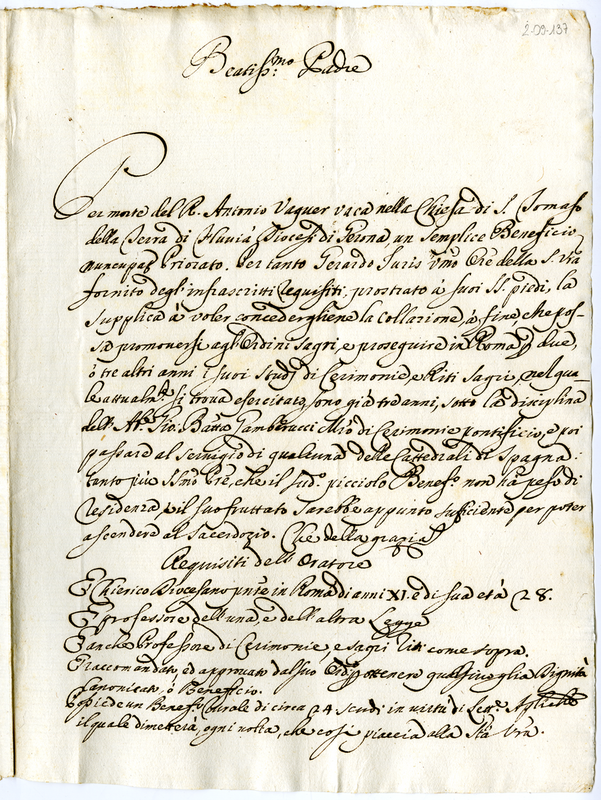 2-09-137
Beatiss.mo Padre
Per morte del R. Antonio Vaquer vaca nella Chiesa di S. Tomaso
della Terra di Fluviá Diocesi di Gerona, un semplice Beneficio
nuncupat Priorato. Per tanto Gerardo Juris Vmo Ore della S. Vra
fornito degl'infrascritti requisiti, prostrato à suoi SS. piedi, la
supplica à voler concedergliene la Collazione, à fine che pos-
sa promoversi agl'Ordini sagri, e proseguire in Roma p due,
ò tre altri anni i suoi Studj di Cerimonie e Riti sagri, nel qua-
le attualm.te si trova esercitato, sono già tre anni, sotto la disciplina
dell'Ab. Gio: Batta Gamberucci Mro di Cerimonie Pontificio, e poi
passare al serviggio di qualcuna delle Cattedrali di Spagna:
tanto più SSmo Pre, che il sud.o picciolo Benef.o non hà peso di
residenza, e il suo fruttato sarebbe appunto sufficiente per poter
ascendere al Sacerdozio. Che della grazia
Requisiti dell'Oratore
È Chierico Diocesano pnte in Roma di anni XI. e di sua età 28.
È professore dell'una, e dell'altra Legge
È anche Professore di Cerimonie, e sagri riti come sopra.
È raccomandato, ed approvato dal suo Ord.o p ottenere qualsivoglia Dignità
Canonicato, ò Beneficio.
Possiede un Benef.o Curale di circa 24 Scudi in virtù di
il quale dimetterà, ogni volta, che così piaccia alla Stà Vra.